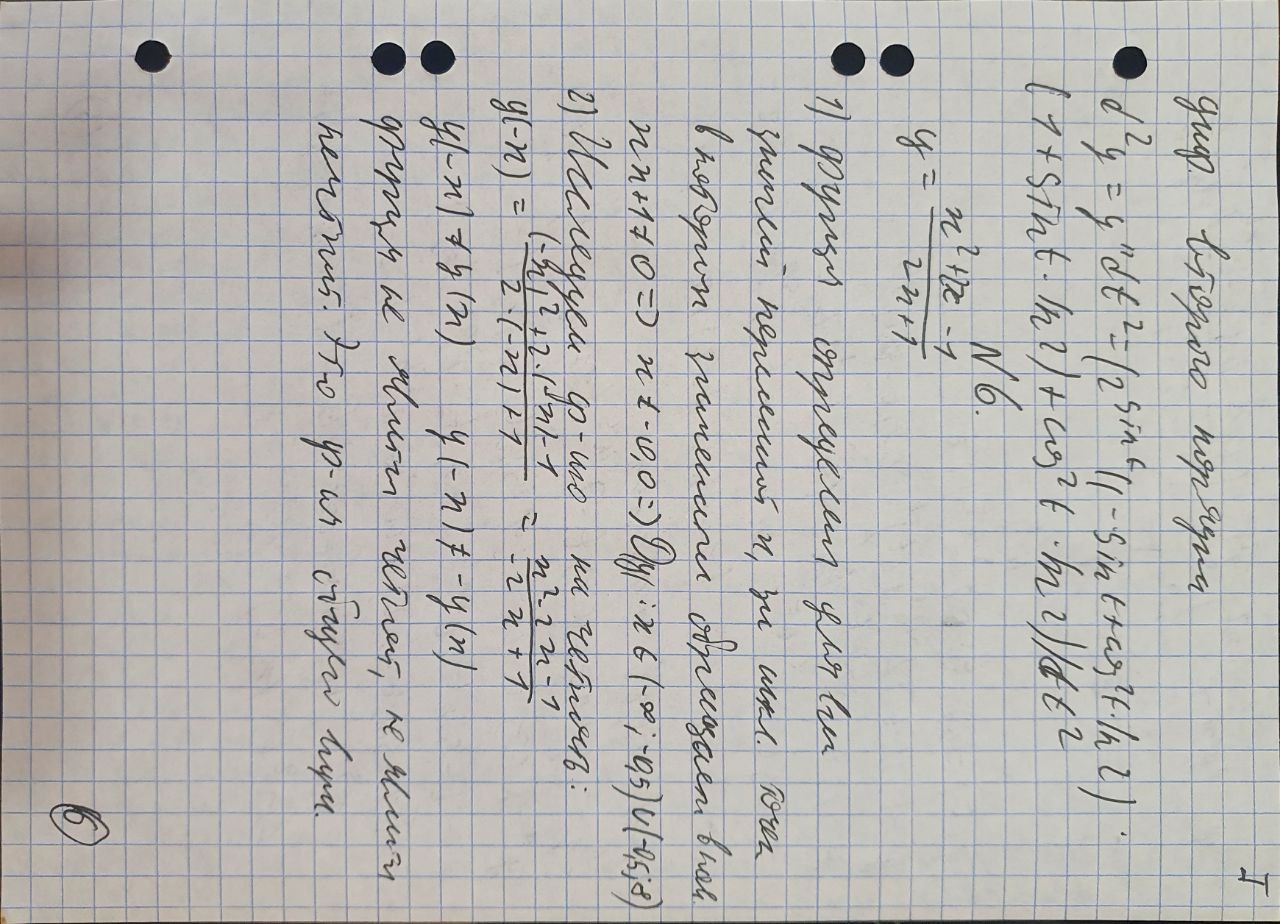 I
диф. второго порядка
d²y = y''dt² = (2^sin t ((-sin t + cos² t · ln 2) ·
(1 + sin t · ln 2) + cos² t · ln 2)) dt²
N6.
y = (x² + 2x - 1)/(2x + 1)
1) функция определена для всех
значений переменной x, за искл. точек
в которых знаменатель обращает в нол.
2x+1≠0 => x≠-0,0 => D(y): x ∈ (-∞; -0,5) ∪ (-0,5; 8)
2) Исследуем ф-ию на четность:
y(-x) = ((-x)² + 2·(-x) - 1)/(2·(-x) + 1) = (x² - 2x - 1)/(-2x + 1)
y(-x) ≠ y(x) y(-x) ≠ -y(x)
функция не является четной, не является
нечетной. Это ф-ия общего вида.
6